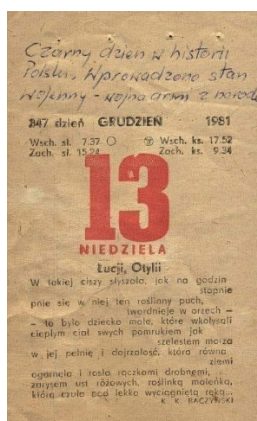 Czarny dzień w historii
Polski. Wprowadzono stan
wojenny - wojna armi z narode
347 dzień GRUDZIEŃ 1981
Wsch. sł. 7.37 Wsch. ks. 17.52
Zach. sł. 15.24 Zach. ks. 9.34
13
NIEDZIELA
Łucji, Otylii
W takiej ciszy słyszała, jak na godzin
stopnie
pnie się w niej ten roślinny puch,
twardnieje w orzech —
— to było dziecko małe, które wkołysali
ciepłym ciał swych pomrukiem jak
szelestem morza
w jej pełnię i dojrzałość, która równa
ziemi
ogarnęła i rosła rączkami drobnemi,
zarysem ust różowych, roślinką maleńką,
którą czuła pod lekko wyciągniętą ręką...
K. K. BACZYŃSKI